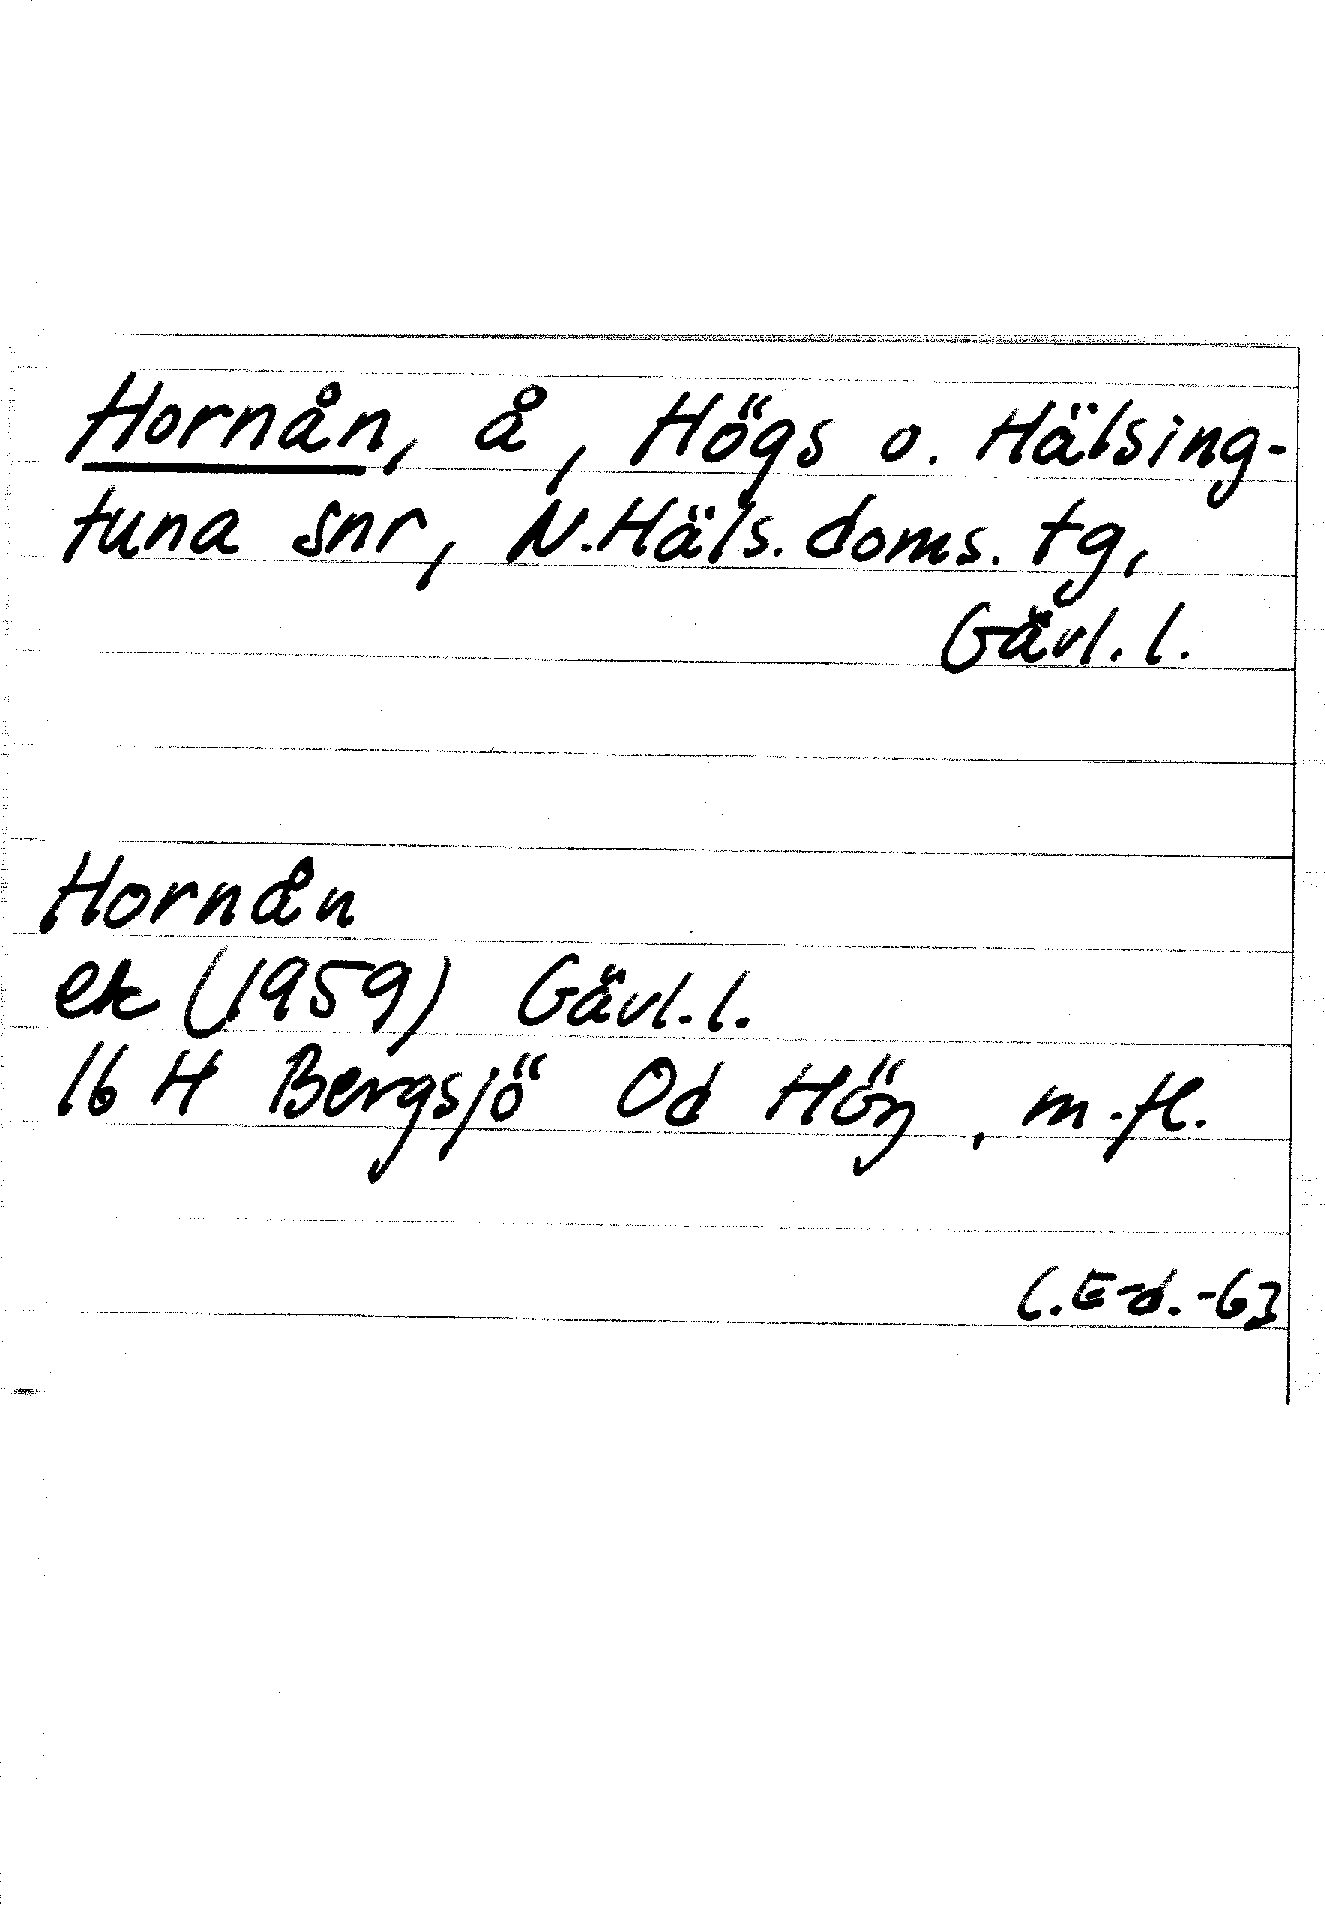 Hornån, å, Högs o. Hälsing-
tuna snr, N.Häls.doms.tg,
Gävl.l.
Hornån
ek (1959) Gävl.l.
16 H Bergsjö Od Hög, m.fl.
C.E-d.-63